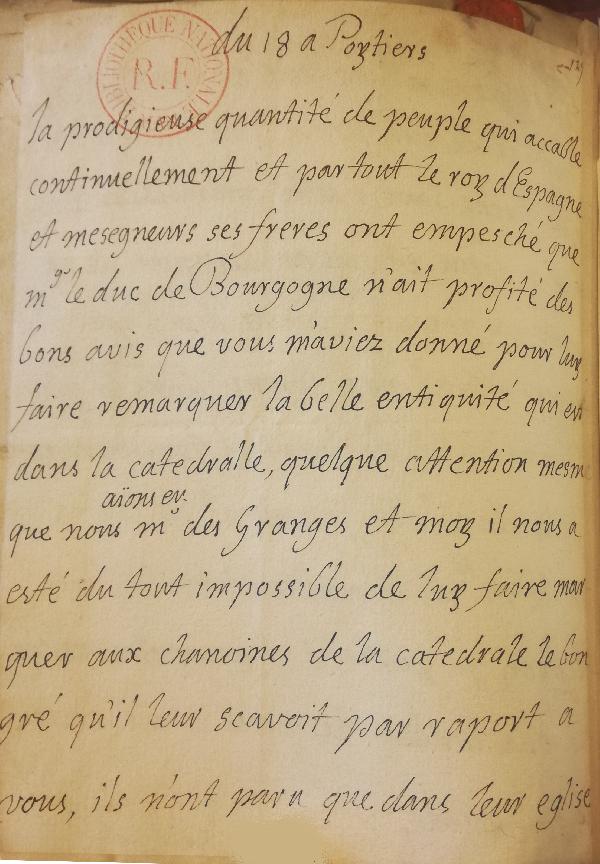 du 18 a Poytiers
BIBLIOTHEQUE NATIONALE
R.F.
la prodigieuse quantité de peuple qui accable
continuellement et partout le roy d'Espagne
et mesegneurs ses freres ont empesché que
mgr le duc de Bourgogne n'ait profité des
bons avis que vous m'aviez donné pour luy
faire remarquer la belle entiquité qui est
dans la catedralle, quelque attention mesme
aïons eu
que nous mr des Granges et moy il nous a
esté du tout impossible de luy faire mar
quer aux chanoines de la catedrale le bon
gré qu'il leur scavoit par raport a
vous, ils n'ont paru que dans leur eglise